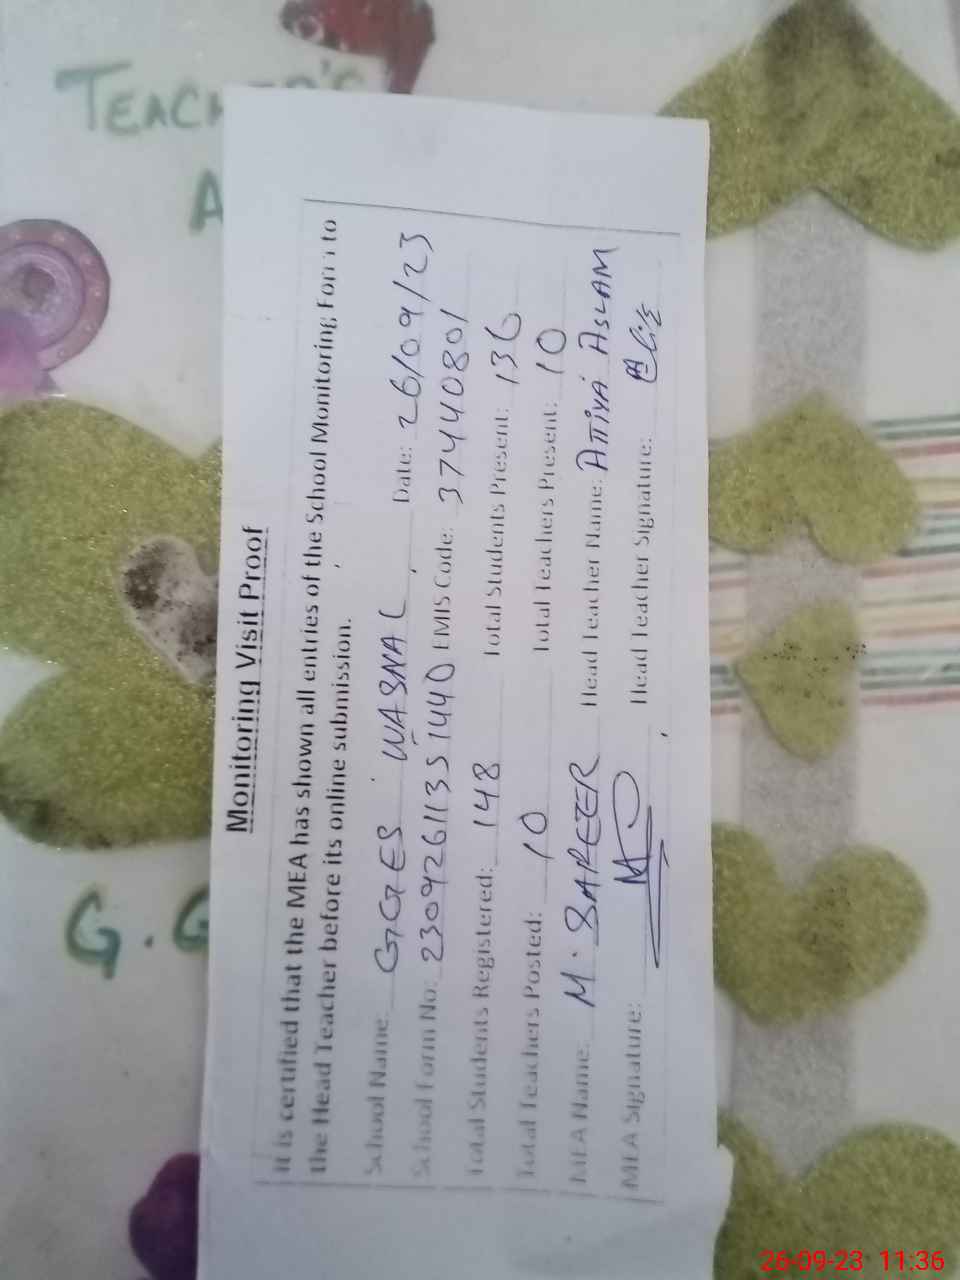 TEACHER'S
A
G.G
Monitoring Visit Proof
It is certified that the MEA has shown all entries of the School Monitoring Form to
the Head Teacher before its online submission.
School Name: GGES WASNAL Date: 26/09/23
School Form No: 23092611351440 EMIS Code: 37440801
Total Students Registered: 148 Total Students Present: 136
Total Teachers Posted: 10 Total Teachers Present: 10
MEA Name: M. Head Teacher Name: ATIYA ASLAM
MEA Signature: Head Teacher Signature:
26-09-23 11:36